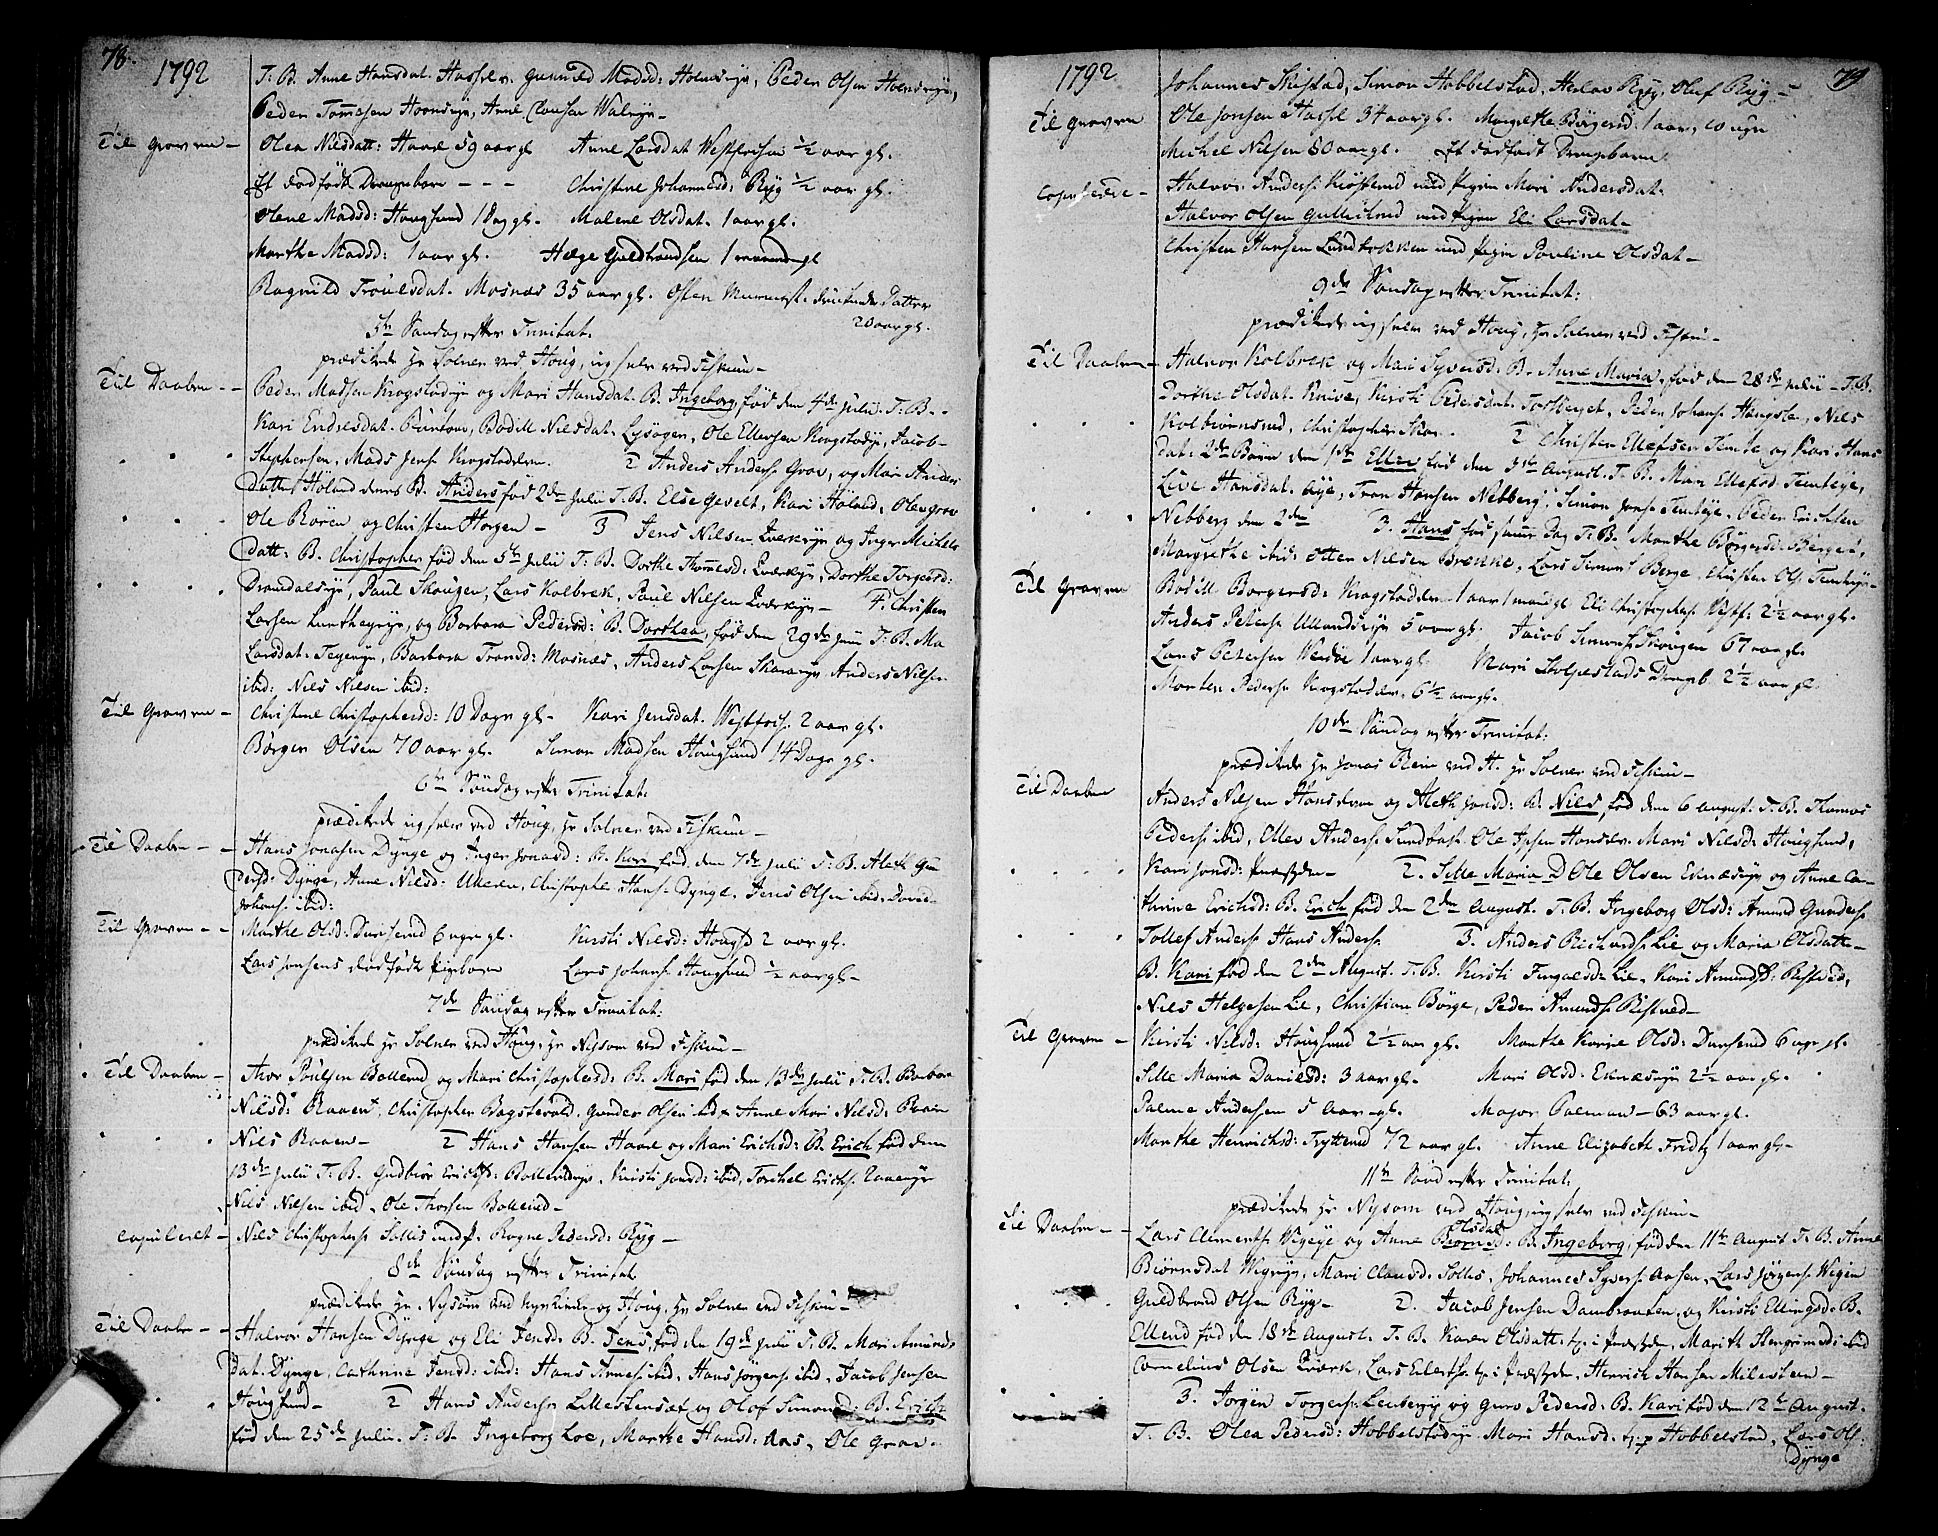 78.
1792
T. B. Anne Hansdat. Hassel v. Gunnild Madsd: Holmseje, Peder Olsen Holmseje,
Peder Tommesen Hornseje, Anne Clausen Walrye –
Til Graven – Olea Nilsdatt: Haare 59 aar gl. Anne Larsdat Westfossen ½ aar gl.
Et dødfødt Drengebarn – – – Christine Johannesd: Ryg ½ aar gl.
Olene Madsd: Hougsund 1 Dag gl. Malene Olsdat. 1 aar gl.
Marthe Madsd: 1 aar gl. Helge Guldbrandsen 1 maaned gl
Ragnild Troulsdat. Mosnæs 35 aar gl. Datter
20 aar gl.
5te Søndag efter Trinitat.
prædikede Hr Solner ved Houg, ieg selv ved Fiskum –
Til Daaben – – Peder Madsen Krogstadeje og Mari Hansdat. B. Ingeborg, fød den 4de Julii. T. B. –
Kari Endresdat. Bodill Nilsdat. Lysogen, Ole Ellensen Krogstadeje, Jacob
Stephensen, Mads Jens. Krogstadelven. 2 Anders Anders. Grav, og Mari Anders
datter Høland deres B. Anders fød 2den Julii T. B. Else Gevelt, Kari Høland, Olea Grav
Ole Røren og Christen Horgen – 3 Jens Nilsen Qverkeje og Inger Michels
datt: B. Christopher fød den 5te Julii T. B. Dorthe Thommesd: Qverkeje, Dorthe Torgersd:
Drandalseje, Paul Skougen, Lars Kolbræk, Paul Nilsen Qverkeje – 4. Christen
Larsen Lunthegeje, og Barbara Pedersd: B. Dorthea, fød den 29de Juni T. B. Ma
Larsdat. Tegeneje, Barbara Transd: Mosnæs, Anders Larsen Skaraeje Anders Nilsen
ibid: Nils Nilsen ibid:
Til Graven – Christine Christophersd: 10 Dage gl. Kari Jensdat. Westfoss. 2 aar gl.
Børger Olsen 70 aar gl. Simon Madsen Hougsund 14 Dage gl.
6te Søndag efter Trinitat:
prædikede ieg selv ved Houg, Hr Solner ved Fiskum –
Til Daaben – – Hans Jonasen Dynge og Inger Jonasd: B. Kari fød den 7de Julii T. B. Aleth Gun
dersd: Dynge, Anne Nilsd: Ulleren, Christophe Hans. Dynge, Jens Olsen ibid. David
Johans. ibid:
Til Graven – – Marthe Olsd: Darisrud 6 uger gl. Kirsti Nilsd: Hougsd 2 aar gl.
Lars Jensens dødfødt Pigebarn Lars Johans. Hougsund ½ aar gl –
7de Søndag efter Trinitat:
prædikede Hr Solner ved Houg, Hr Nysom ved Fiskum –
Til Daaben – Thor Poulsen Bollerud og Mari Christophersd: B. Mari fød den 13de Julii T. B. Barbra
Nilsd: Raaen, Christopher Bagstevold. Gunder Olsen ibid, Anne Mari Nilsd: Raaen
Nils Raaen – 2 Hans Hansen Haare og Mari Erichsd: B. Erich fød den
13de Julii T. B. Gudbior Ericks: Bollerudeje. Kirsti Jonsd: ibid, Torchel Erichs.
Nils Nilsen ibid, Ole Thorsen Bollerud –
Copuleret – Nils Christophers. Sollis med P. Ragne Pedersd: Ryg –
8de Søndag efter Trinitat
prædikede Hr. Nysom ved Nykirke og Houg, Hr Solner ved Fiskum –
Til Daaben – – Halvor Hansen Dynge og Eli Jensd: B. Jens, fød den 19de Julii T. B. Mari Amunds
Dat. Dynge, Cathrine Jensd: ibid: Hans Arnes. ibid, Hans Jørgens. ibid, Jacob Jensen
Hougsund – 2 Hans Anders. Lillestensæt og Oloe Simonsd: B. Erich
fød den 25de Julii. T. B. Ingeborg Loe, Marthe Hansd: Aas, Ole Grav –
79
1792
Johannes Skistad, Simon Hobbelstad, Hellov Ryg, Oluf Ryg –
Til Graven Ole Jonsen Hassel 34 aar gl. Margrethe Børgersd. 1 aar, 10 uger
Michel Nilsen 80 aar gl. Et dødfødt Drengebarn
Copulerede – Halvor Anders. Kiøsterud med Pigen Mari Andersdat.
Halvor Olsen Gullilsrud med Pigen Eli Larsdat –
Christen Hansen Lundbækken med Pigen Pauline Olsdat –
9de Søndag efter Trinitat:
prædikede ieg selv ved Houg, Hr Solner ved Fiskum –
Til Daaben – Halvor Kolbræk og Mari Syversd: B. Anne Maria, fød den 28de Julii – T. B.
Dorthe Olsdat. Knive, Kirsti Pedersdat. Peder Johans. Hougsle, Nils
Kolbiørnsrud, Christopher Skar. 2 Christen Ellefsen Temte og Kari Hans
dat: 2de Børn den 1ste Ellen fød den 3die August. T. B. Mari Ellefsd. Temteje,
Live Hansdat. Aeje, Tron Hansen Nebberg, Simon Jens. Temteje. Peder Erichsen
Nebberg den 2den 3. Hans fød samme Dag T. B. Marthe Børgersd: Berger,
Margrethe ibid: Otter Nilsen Brekke, Lars Simons. Berge, Christen Ols. Temteje –
Til Graven Bodill Borgersd: Krogstadelven 1 aar 1 maaned gl Eli Christophers. Vestf. 2½ aar gl.
Anders Peters. Ullandseje 5 aar gl. Jacob Simons. Skougen 67 aar gl.
Lars Petersen Verløe 1 aar gl. Mari Stolpestads Drengeb. 2½ aar gl.
Morten Peders. Krogstadelv. 6½ aar gl.
10de Søndag efter Trinitat:
prædikede Hr Jonas Rein ved H. Hr Solner ved Fiskum –
Til Daaben Anders Nilsen Hanserud og Aleth Jonsd: B. Nils, fød den 6 august. T. B. Thomas
Peders. ibid, Ellev Anders. Sundbas. Ole Ipsen Horsle. Mari Nilsd: Hougsund,
Kari Jonsd: Præsteg – 2. Sille Maria D Ole Olsen Eknæseje og Anne Ca
thrine Erichsd: B. Erich fød den 2den August. T. B. Ingeborg Olsd: Amund Gunders.
Tollef Anders. Hans Anders. 3. Anders Richards. Lie og Maria Olsdatt –
B. Kari fød den 2den August. T. B. Kirsti Fingalsd: Lie, Kari Amunds: Ristved,
Nils Helgesen Lie, Christian Børge, Peder Amunds. Ristved –
Til Graven – Kirsti Nilsd: Hougsund 2½ aar gl. Marthe Karine Olsd: Darisrud 6 uger gl.
Sille Maria Danielsd: 3 aar gl. Mari Olsd. Eknæseje 2½ aar gl.
Palme Andersen 5 Aar gl. Major Palmau – 63 aar gl.
Marthe Henrichsd: Tryterud 72 aar gl. Anne Elizabeth Fridtz 1 aar gl –
11te Sønd efter Trinitat:
prædikede Hr Nysom ved Houg, ieg selv ved Fiskum –
Olsdat
Til Daaben – – Lars Clements. Wegeje og Anne Biørnsd: B. Ingeborg, fød den 11te August T. B. Anne
Biørnsdat Wegeje, Mari Clausd: Sollis, Johannes Syvers. Aasen, Lars Jørgens. Wegen
Guldbrand Olsen Ryg – 2. Jacob Jensen Dambraaten, og Kirsti Ellingsd: B.
Ellend fød den 18de August. T. B. Karen Olsdatt. tj. i Præsteg, Marith Stengrimsd: ibid
Cornelius Olsen Qværk, Lars Eilerts. tj. i Præsteg, Henrich Hansen Milesteen –
3. Jørgen Torgers. Lerbergeje og Guro Pedersd: B. Kari fød den 12te August.
T. B. Olea Pedersd: Hobbelstadeje Mari Hansd. tj. p. Hobbelstad, Lars Ols:
Dynge